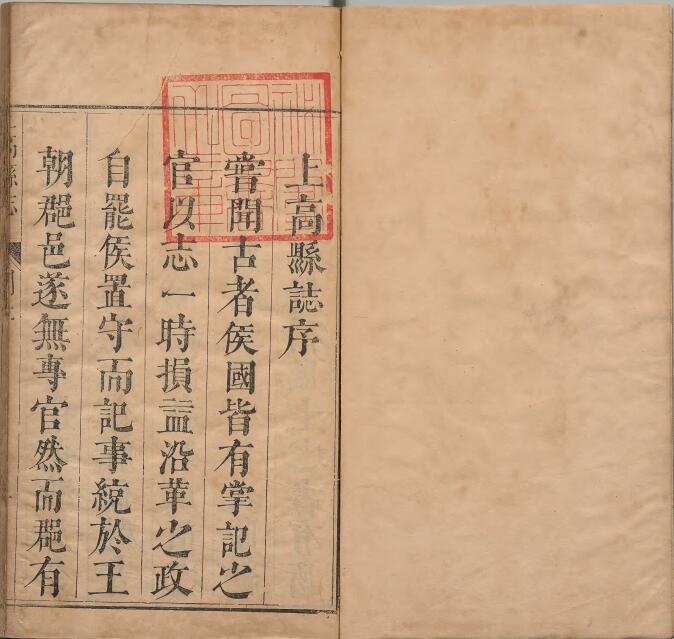 上高縣誌序
嘗聞古者侯國皆有掌記之
官以志一時損益沿革之政
自罷侯置守而記事統於王
朝郡邑遂無專官然而郡有
高縣志